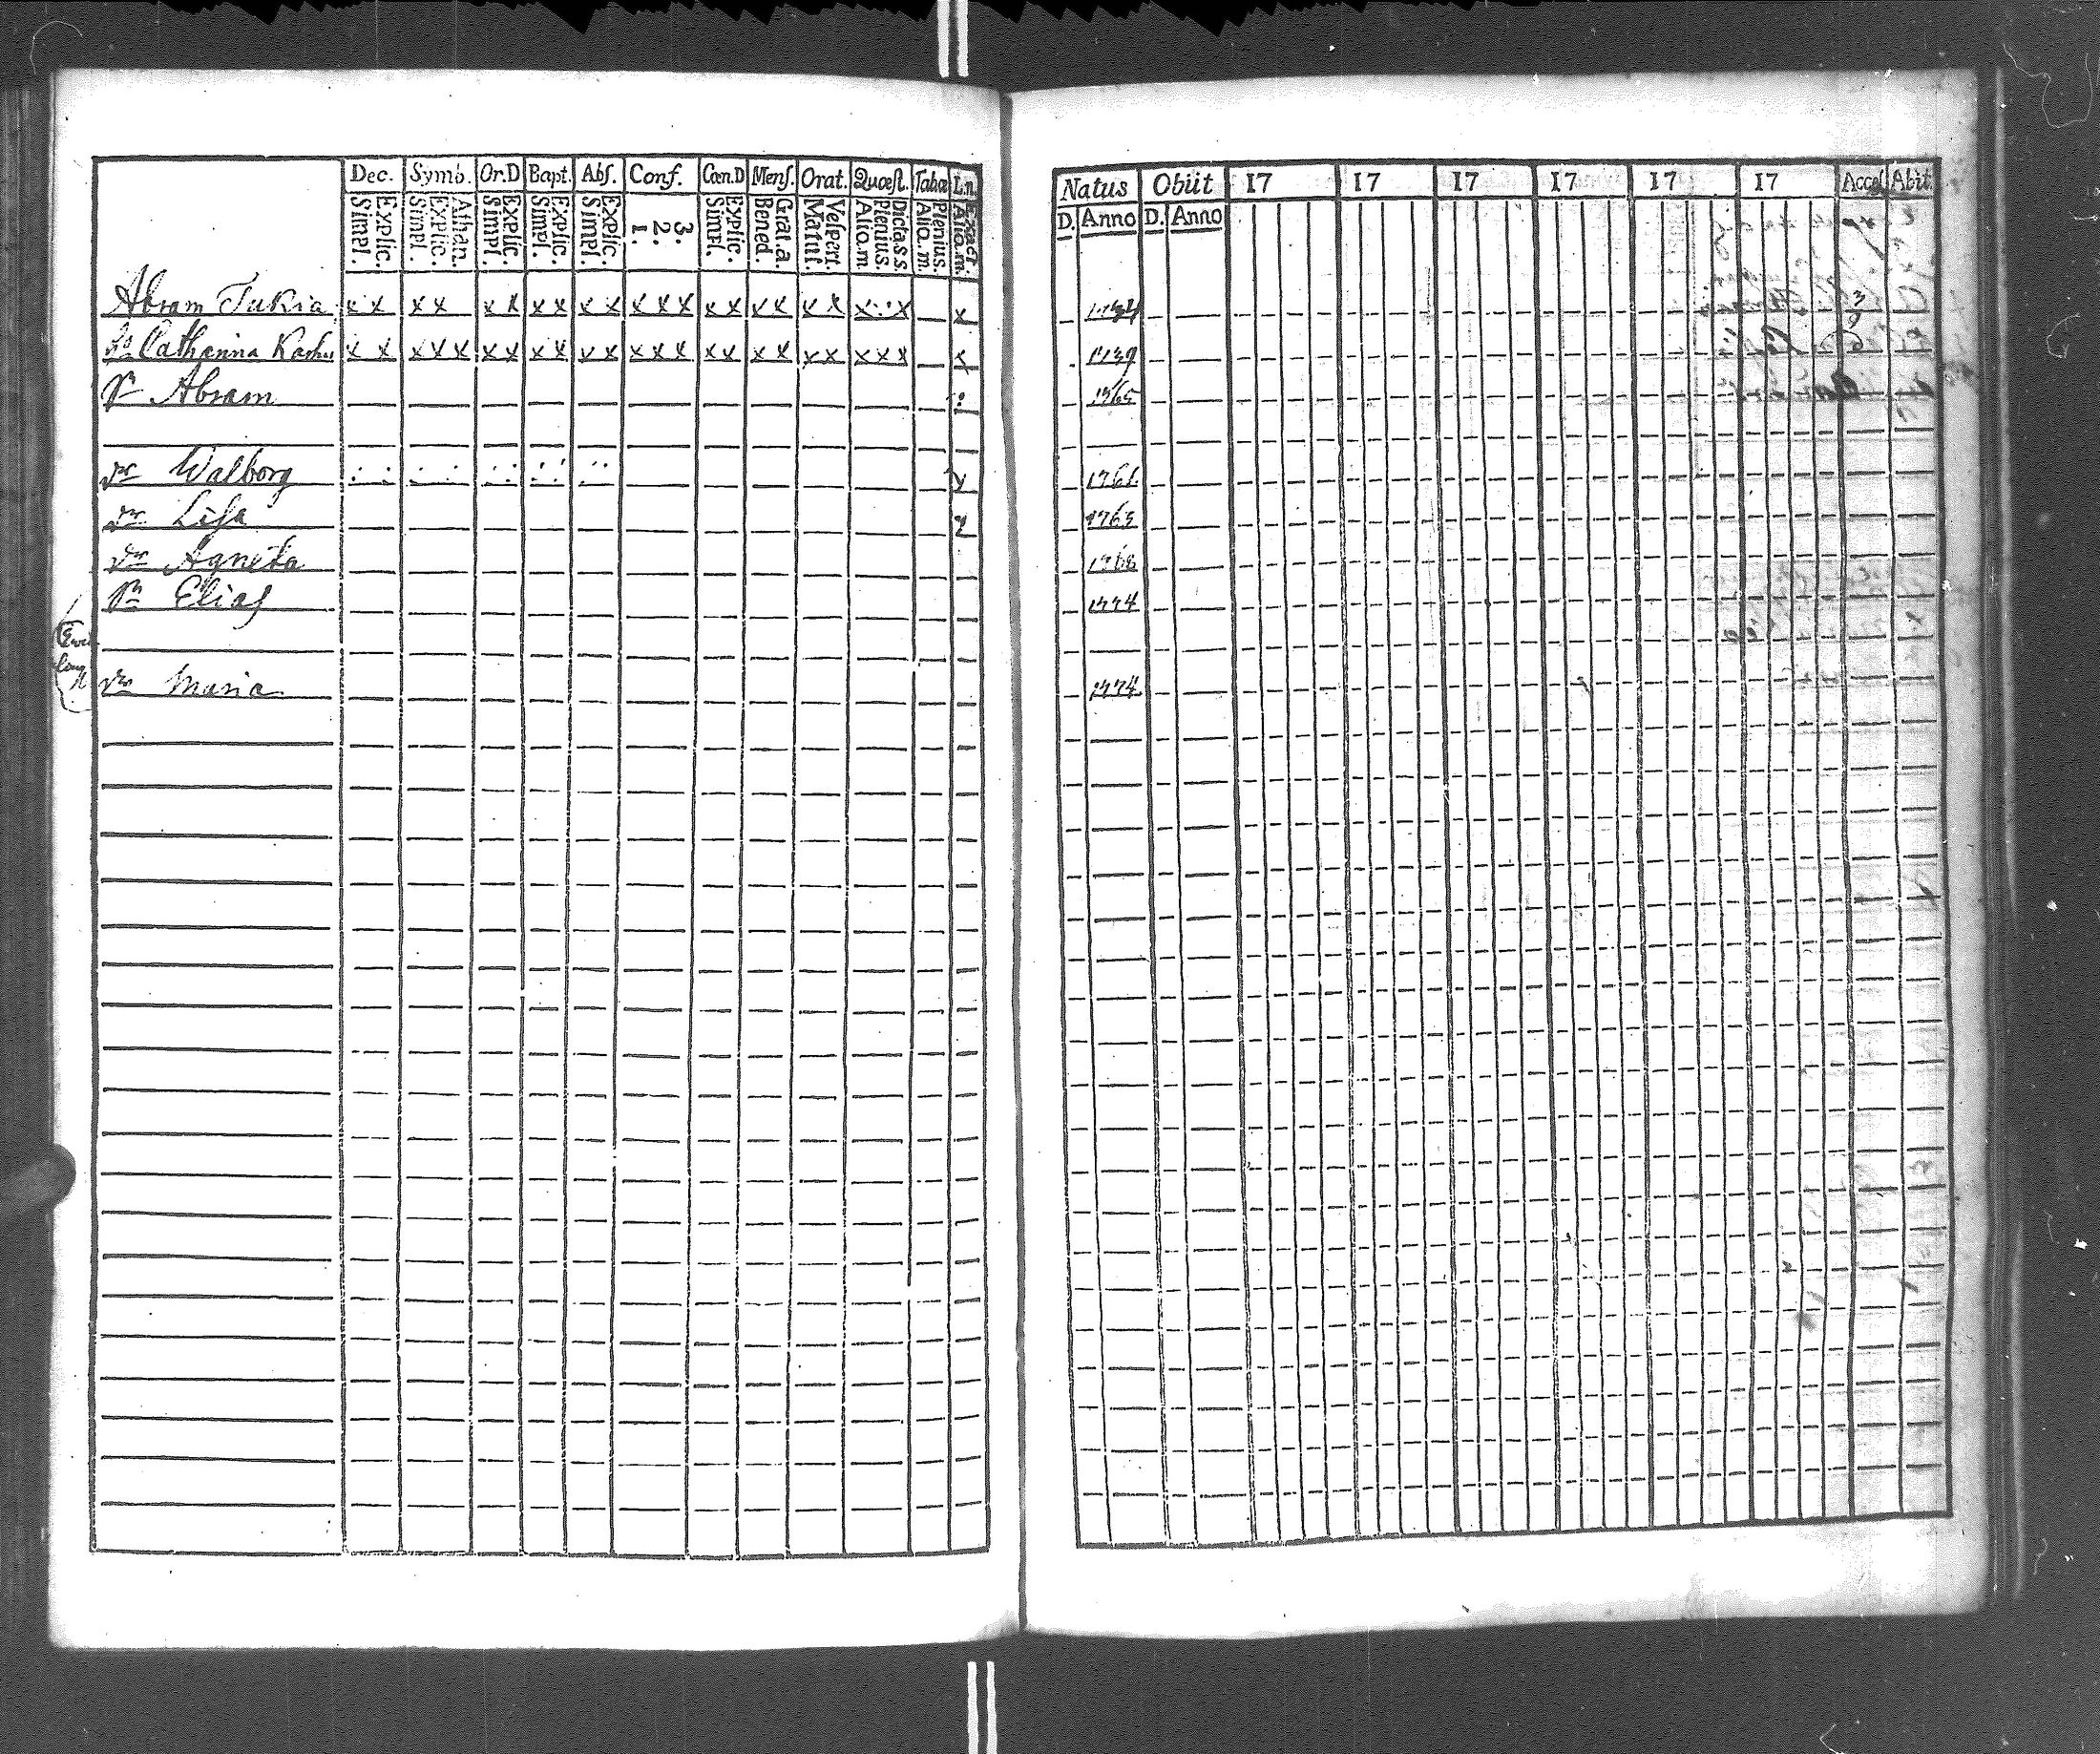 Dec. Symb. Or.D Bapt. Abs. Conf. Cœn.D Mens. Orat. Quæst. Taba L.n.
Explic. Simpl. Athan. Explic. Simpl. Explic. Simpl. Explic. Simpl. Explic. Simpl. 3. 2. 1. Explic. Simpl. Grat.a. Bened. Vespert. Matut. Dicta.s.s. Plenius. Alio.m Plenius. Alio.m. Exact. Alio.m.
Abram Tukia x x x x x x x x x x x x x x x x x x x x x x
Catharina x x x x x x x x x x x x x x x x x x x x x x x x x
Abram
Walborg x
Lisa
Agneta
Elias
Maria
Natus Obiit 17 17 17 17 17 17 Acces Abit.
D. Anno D. Anno
1734
1739
1765
1761
1763
1768
1774
1774